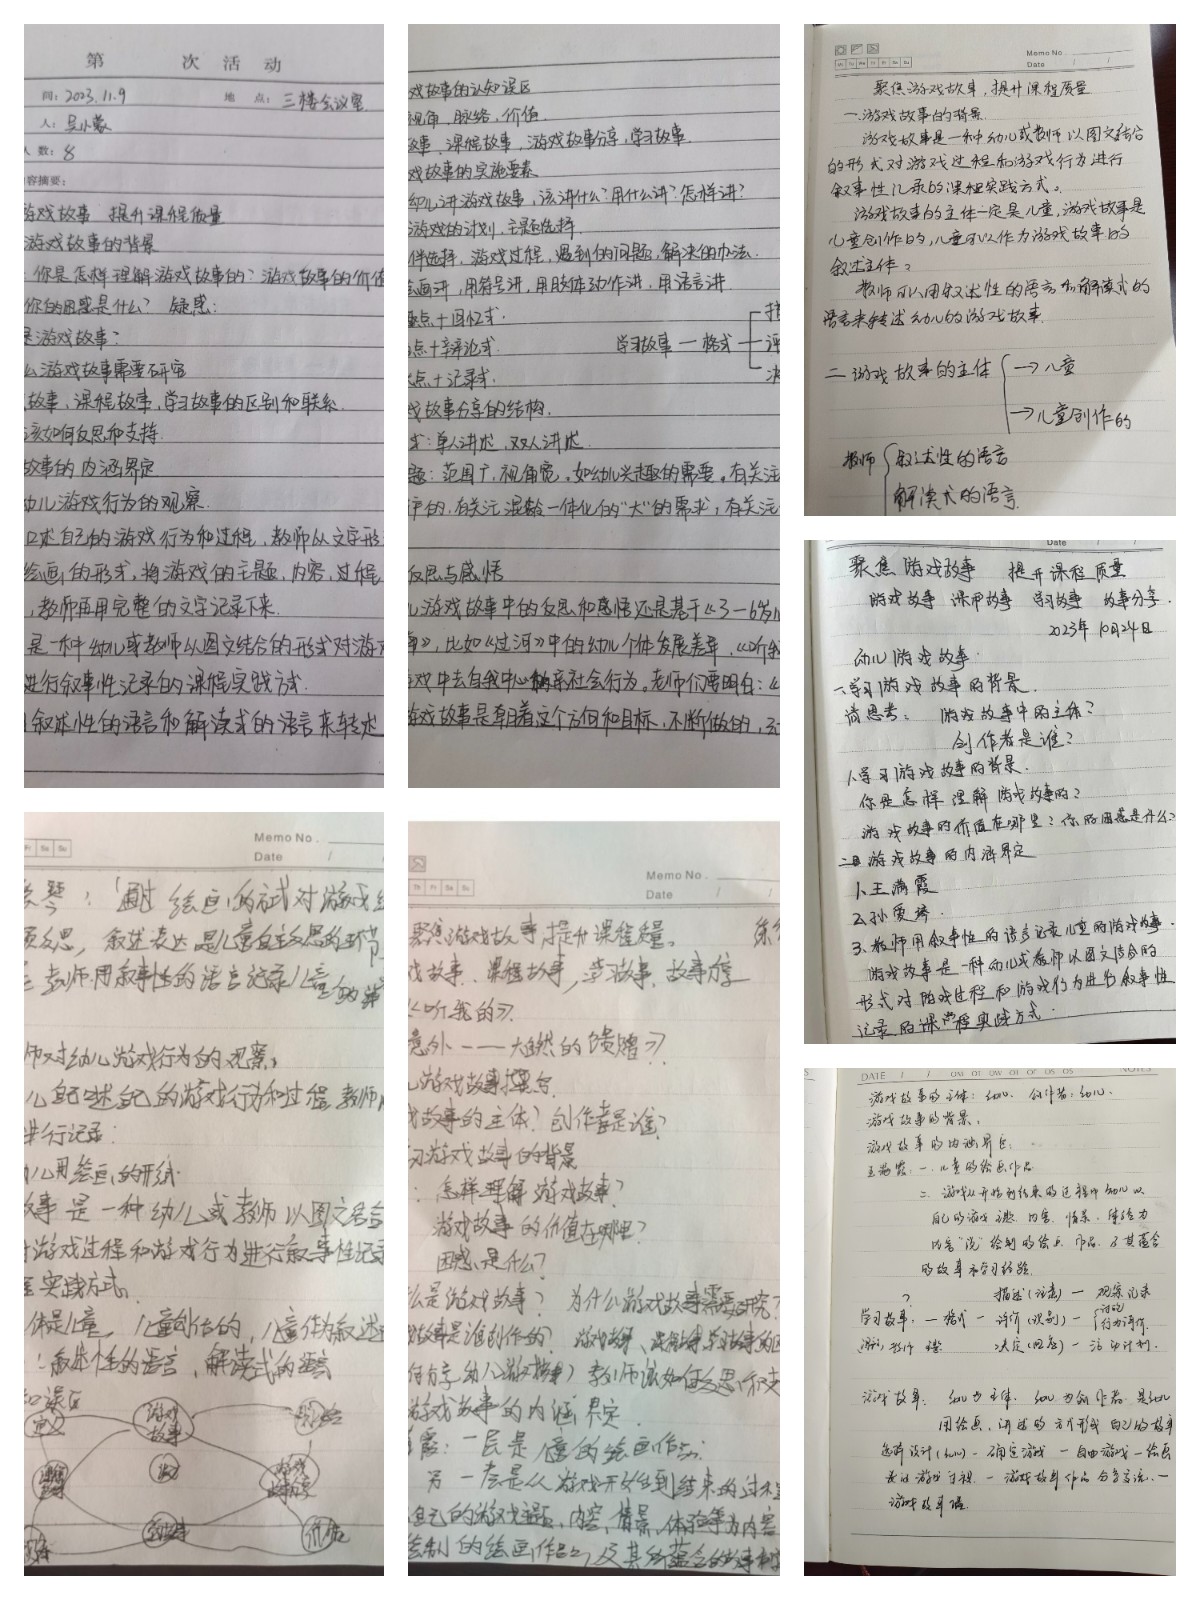 第 次 活 动
间: 2023.11.9 地 点: 三楼会议室
人: 吴小蒙
人 数: 8
容摘要:
游戏故事 提升课程质量
游戏故事的背景
你是怎样理解游戏故事的? 游戏故事的价值
你的困惑是什么? 疑惑:
是游戏故事:
么游戏故事需要研究
故事, 课程故事, 学习故事的区别和联系.
该如何反思和支持.
故事的内涵界定
幼儿游戏行为的观察.
口述自己的游戏行为和过程, 教师从文字形
绘画的形式, 将游戏的主题, 内容, 过程
, 教师再用完整的文字记录下来.
是一种幼儿或教师以图文结合的形式对游戏
进行叙事性记录的课程实践方式.
叙述性的语言和解读式的语言来转述
戏故事的认知误区
视角, 脉络, 价值.
故事, 课程故事, 游戏故事分享, 学习故事.
戏故事的实施要素
幼儿讲游戏故事, 该讲什么? 用什么讲? 怎样讲?
游戏的计划, 主题选择
伴选择, 游戏过程, 遇到的问题, 解决的办法.
绘画讲, 用符号讲, 用肢体动作讲, 用语言讲.
点+回忆式.
点+辩论式. 学习故事 — 格式
点+记录式.
戏故事分享的结构.
式: 单人讲述, 双人讲述.
题: 范围广, 视角宽. 如幼儿兴趣的需要. 有关注
的, 有关注混龄一体化的"大"的需求; 有关注
反思与感悟
儿游戏故事中的反思和感悟还是基于《3-6岁儿
》, 比如《过河》中的幼儿个体发展差异, 《听我
戏中去自我中心 亲社会行为. 老师们要明白: 《
游戏故事是朝着这个方向和目标, 不断做的,
Memo No.
Date / /
聚焦游戏故事, 提升课程质量
一.游戏故事的背景.
游戏故事是一种幼儿或教师以图文结合
的形式对游戏过程和游戏行为进行
叙事性记录的课程实践方式。
游戏故事的主体一定是儿童, 游戏故事是
儿童创作的, 儿童可以作为游戏故事的
叙述主体。
教师可以用叙述性的语言和解读式的
语言来转述幼儿的游戏故事.
二.游戏故事的主体 →儿童
→儿童创作的
教师 叙述性的语言
解读式的语言.
Date / /
聚焦游戏故事 提升课程质量
游戏故事 课程故事 学习故事 故事分享.
2023年10月24日
幼儿游戏故事.
一.学习游戏故事的背景.
请思考: 游戏故事中的主体?
创作者是谁?
1.学习游戏故事的背景.
你是怎样理解游戏故事的?
游戏故事的价值在哪里? 你的困惑是什么?
二. 游戏故事的内涵界定
1.王满霞
2.孙爱琴
3.教师用叙事性的语言记录儿童的游戏故事.
游戏故事是一种幼儿或教师以图文结合的
形式对游戏过程和游戏行为进行叙事性
记录的课程实践方式.
Memo No.
Date /
琴: 通过绘画的方式对游戏
反思, 叙述表达是儿童自主反思的环节
教师用叙事性的语言记录儿童的
师对幼儿游戏行为的观察,
儿自己口述自己的游戏行为和过程, 教师
进行记录:
幼儿用绘画的形式.
故事是一种幼儿或教师以图文结合
对游戏过程和游戏行为进行叙事性记录
实践方式.
体是儿童, 儿童创作的, 儿童作为叙述
: 叙述性的语言, 解读式的语言
知误区
定义 游戏故事
价值
Memo No.
Date / /
聚焦游戏故事, 提升课程质量。
戏故事、课程故事, 学习故事、故事分享
《听我的》
意外——大自然的馈赠》
游戏故事撰写.
戏故事的主体? 创作者是谁?
习游戏故事的背景
: 怎样理解游戏故事?
游戏故事的价值在哪里?
困惑是什么?
么是游戏故事? 为什么游戏故事需要研究?
故事是谁创作的? 游戏故事、课程故事学习故事的区
何分享幼儿游戏故事) 教师该如何反思和支
游戏故事的内涵界定
霞: 一层是儿童的绘画作品;
另一层是从游戏开始到结束的过程
自己的游戏主题、内容、情景、体验等为内容
绘制的绘画作品, 及其所蕴含的故事和学
DATE / / NOTES
游戏故事的主体: 幼儿. 创作者: 幼儿.
游戏故事的背景.
游戏故事的内涵界定:
王满霞: 一. 儿童的绘画作品
二. 游戏从开始到结束的过程中幼儿以
自己的游戏主题、内容、情景、体验为
内容"说"绘制的绘画作品, 及其蕴含
的故事和学习经验.
? 描述(注意) — 观察记录
学习故事: — 格式 — 评价(识别) — 行为评价.
决定(回应) — 活动计划.
游戏故事: 幼儿为主体. 幼儿为创作者. 是幼儿
用绘画、讲述的方式形成自己的故事
选择设计(幼儿) — 确定游戏 — 自由游戏 — 绘画
— 游戏故事作品分享交流. —
游戏故事